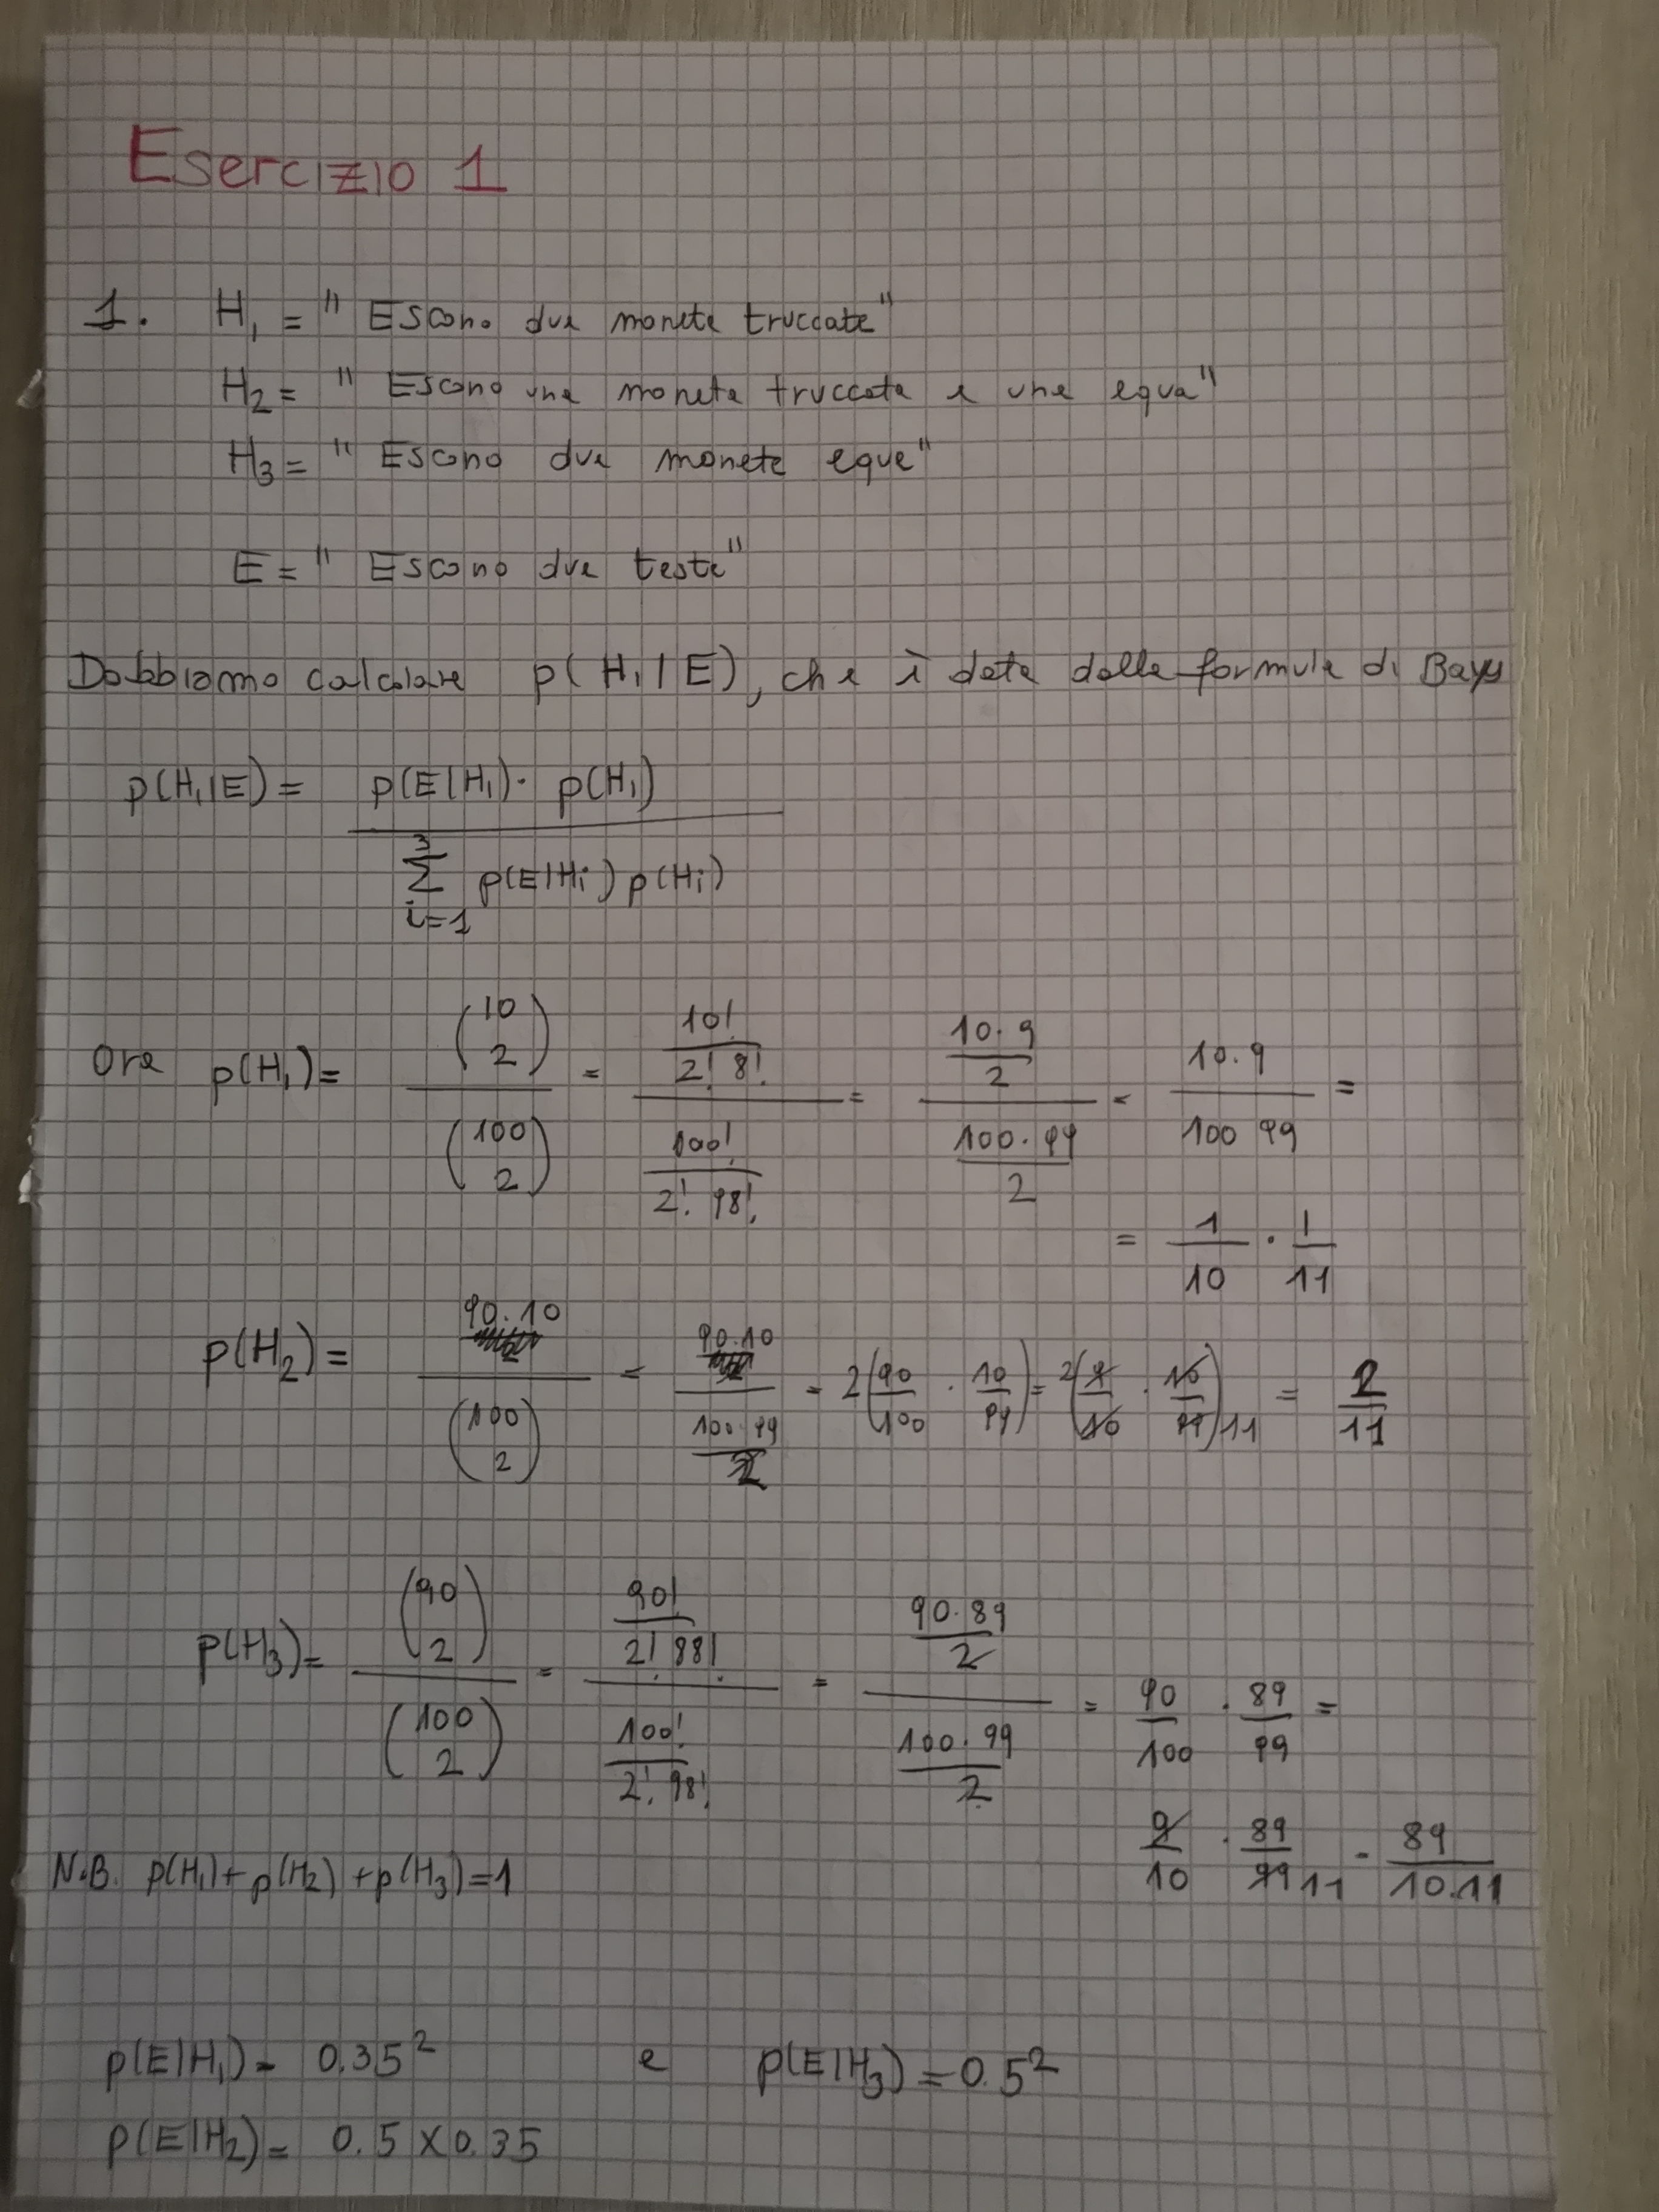 Esercizio 1
1. H₁ = "Escono due monete truccate"
H₂ = "Escono una moneta truccata e una equa"
H₃ = "Escono due monete eque"
E = "Escono due teste"
Dobbiamo calcolare p(H₁|E), che è data dalla formula di Bayes
p(H₁|E) = p(E|H₁) · p(H₁) / ∑_{i=1}^{3} p(E|Hi) p(Hi)
Ora p(H₁) = (10 2) / (100 2) = (10! / 2! 8!) / (100! / 2! 98!) = (10·9 / 2) / (100·99 / 2) = 10·9 / 100 99 =
= 1/10 · 1/11
p(H₂) = 90·10 / (100 2) = 90·10 / (100·99 / 2) = 2(90/100 · 10/99) = 2(9/10 · 10/99) 11 = 2/11
p(H₃) = (90 2) / (100 2) = (90! / 2! 88!) / (100! / 2! 98!) = (90·89 / 2) / (100·99 / 2) = 90/100 · 89/99 =
9/10 · 89/99 11 = 89 / 10·11
N.B. p(H₁) + p(H₂) + p(H₃) = 1
p(E|H₁) = 0.35² e p(E|H₃) = 0.5²
p(E|H₂) = 0.5 × 0.35